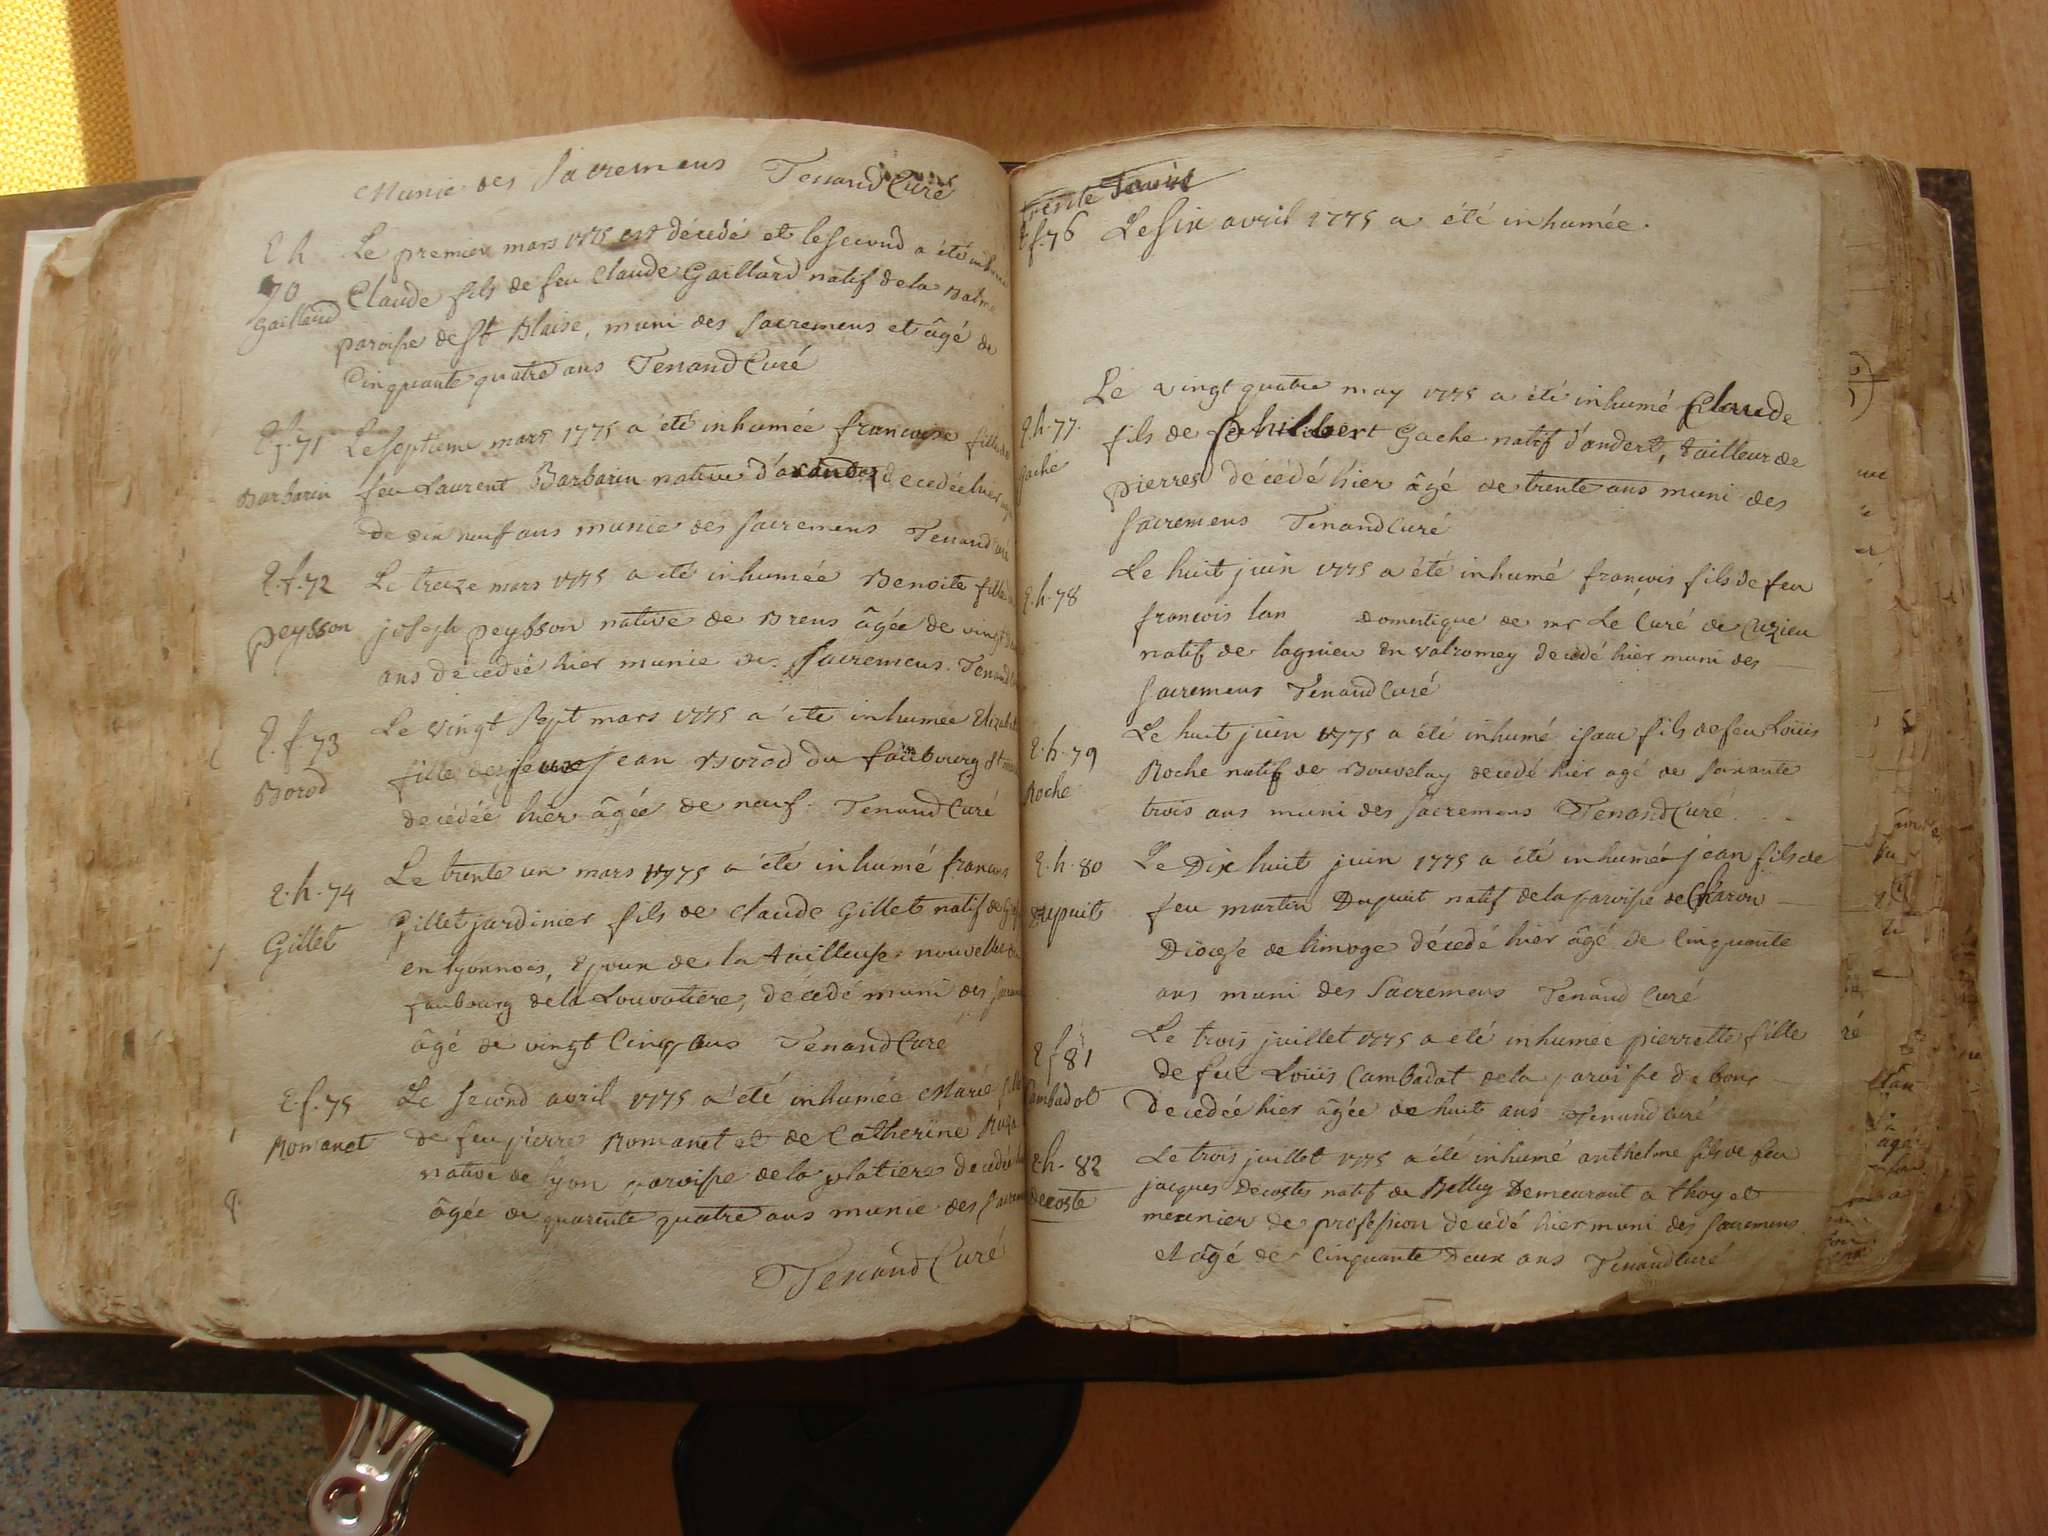 Munie des Sacremens Tenand Curé
E h Le premier mars 1775 est décedé et le second a été inhumé
70 Claude fils de feu Claude Gaillard natif de la Balme
Gaillard paroisse de St Blaise, muni des Sacremens et âgé de
Cinquante quatre ans Tenand Curé
E.f.71 Le septieme mars 1775 a été inhumée francoise fille de
Barbarin feu Laurent Barbarin native d' decedée hier
de dix neuf ans munie des Sacremens Tenand Curé
E.f.72 Le treize mars 1775 a été inhumée Benoite fille
peysson joseph peysson native de Brens âgée de vingt
ans décedée hier munie des Sacremens. Tenand
E.f.73 Le vingt sept mars 1775 a été inhumée Elizabeth
Borod fille de jean Borod du faubourg St
decédée hier âgée de neuf. Tenand Curé
E.h.74 Le trente un mars 1775 a été inhumé francois
Gillet Gillet jardinier fils de Claude Gillet natif de
en lyonnois, Epoux de la tailleuse nouvelle
faubourg de la Louvatiere, décedé muni des
âgé de vingt Cinq ans Tenand Curé
E.f.75 Le second avril 1775 a été inhumée Marie fille
Romanet de feu pierre Romanet et de Catherine
native de lyon paroisse de la platiere decedée
âgée de quarente quatre ans munie des Sacremens
Tenand Curé
trente
E f.76 Le six avril 1775 a été inhumée.
Le vingt quatre may 1775 a été inhumé Claude
E.h.77. fils de philibert Gache natif d'andert, tailleur de
Gache pierres décédé hier âgé de trente ans muni des
Sacremens Tenand Curé
Le huit juin 1775 a été inhumé francois fils de feu
E.h.78 francois lan Domestique de mr Le Curé de Cuzieu
natif de lagnieu en valromey decedé hier muni des
Sacremens Tenand Curé
Le huit juin 1775 a été inhumé isaac fils de feu Loüis
E.h.79 Roche natif de Bouvelay decédé hier agé de soixante
Roche trois ans muni des Sacremens Tenand Curé
E.h.80 Le Dix huit juin 1775 a été inhumé jean fils de
Dupuit feu martin Dupuit natif de la paroisse de Charon
Diocese de limoge décedé hier âgé de Cinquante
ans muni des Sacremens Tenand Curé
Le trois juillet 1775 a été inhumée pierrette fille
E f 81 de feu Loüis Cambadot de la paroisse de bons
Cambadot decedée hier âgée de huit ans Tenand Curé
E h. 82 Le trois juillet 1775 a été inhumé anthelme fils de feu
Decoste jacques Decostes natif de Belley Demeurant a thoy et
meunier de profession decedé hier muni des Sacremens
et âgé de Cinquante Deux ans Tenand Curé